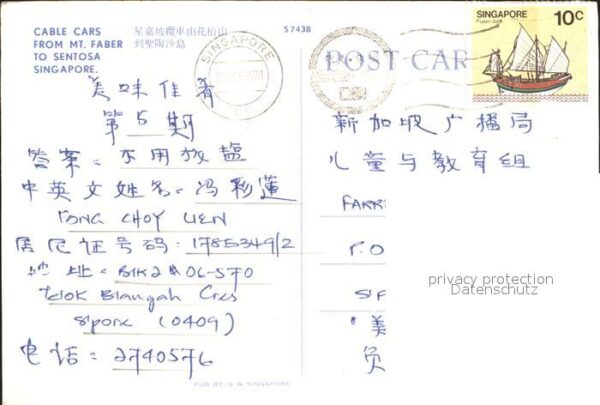 CABLE CARS
FROM MT. FABER
TO SENTOSA
SINGAPORE.
星嘉坡纜車由花柏山
到聖陶沙島
S7438
SINGAPORE
POST CAR
SINGAPORE 10c
美味佳肴
第5期
答案:不用放鹽
中英文姓名:冯彩蓮
FONG CHOY LIEN
居民证号码:1785349/2
地址:BLK 2 # 06-570
Telok Blangah Cres
S'pore (0409)
电话:2740576
新加坡广播局
儿童与教育组
FARR
P.O
S'P
"美
负
privacy protection
Datenschutz
PUB. BY.: S.W. SINGAPORE